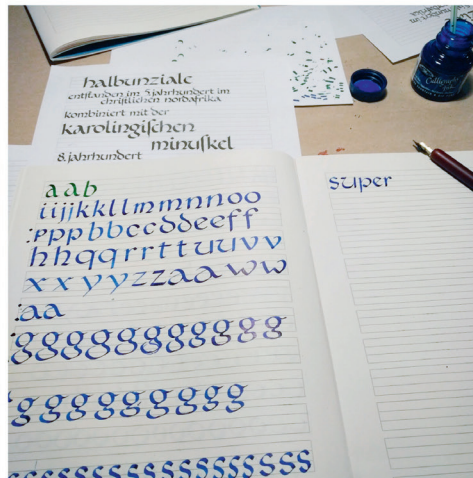 halbunziale
entſtanden im 5.jahrhundert im
chriſtlichen nordafrika
kombiniert mit der
karolingiſchen
minuſkel
8.jahrhundert
a a b
iijjkkllmmnnoo
:pppbbccddeeff
hhqqrrttuuvv
xxyyzzaaww
:aa
:ggggggggggg
ggggggggg
sssssssssssssssss
super
Calligraphy
Ink